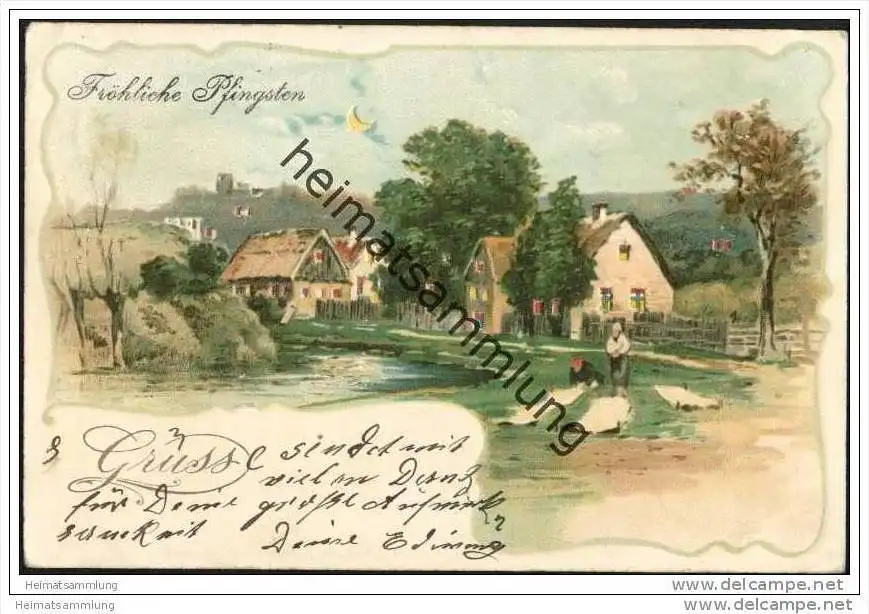 Fröhliche Pfingsten
heimatsammlung
Grüsse sindet mit
vielen Dank
für Deine große Aufmerk
samkeit Deine
Heimatsammlung
Heimatsammlung
www.delcampe.net
www.heimatsammlung.de